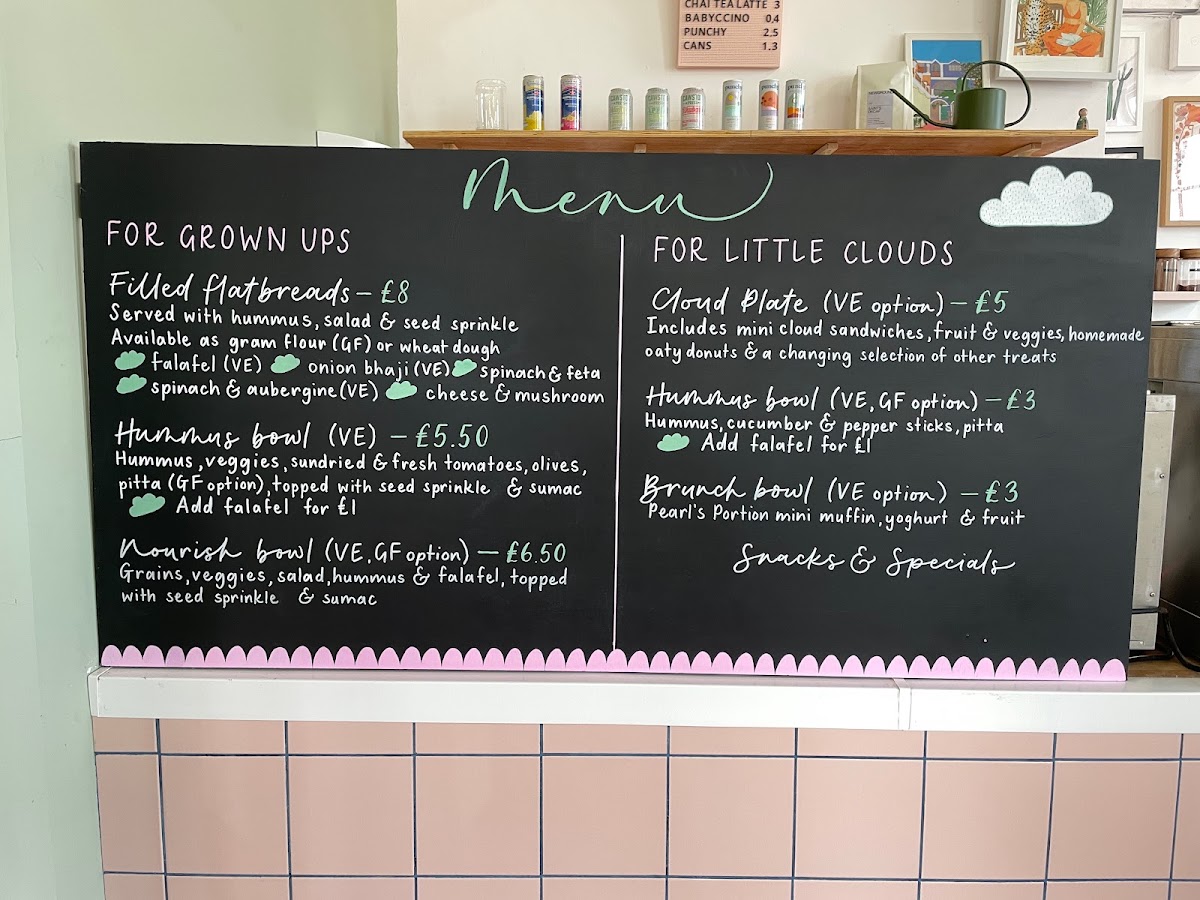 CHAI TEA LATTE 3
BABYCCINO 0,4
PUNCHY 2.5
CANS 1.3
Menu
FOR GROWN UPS
Filled flatbreads - £8
Served with hummus, salad & seed sprinkle
Available as gram flour (GF) or wheat dough
falafel (VE) onion bhaji (VE) spinach & feta
spinach & aubergine (VE) cheese & mushroom
Hummus bowl (VE) - £5.50
Hummus, veggies, sundried & fresh tomatoes, olives,
pitta (GF option), topped with seed sprinkle & sumac
Add falafel for £1
Nourish bowl (VE, GF option) - £6.50
Grains, veggies, salad, hummus & falafel, topped
with seed sprinkle & sumac
FOR LITTLE CLOUDS
Cloud Plate (VE option) - £5
Includes mini cloud sandwiches, fruit & veggies, homemade
oaty donuts & a changing selection of other treats
Hummus bowl (VE, GF option) - £3
Hummus, cucumber & pepper sticks, pitta
Add falafel for £1
Brunch bowl (VE option) - £3
Pearl's Portion mini muffin, yoghurt & fruit
Snacks & Specials